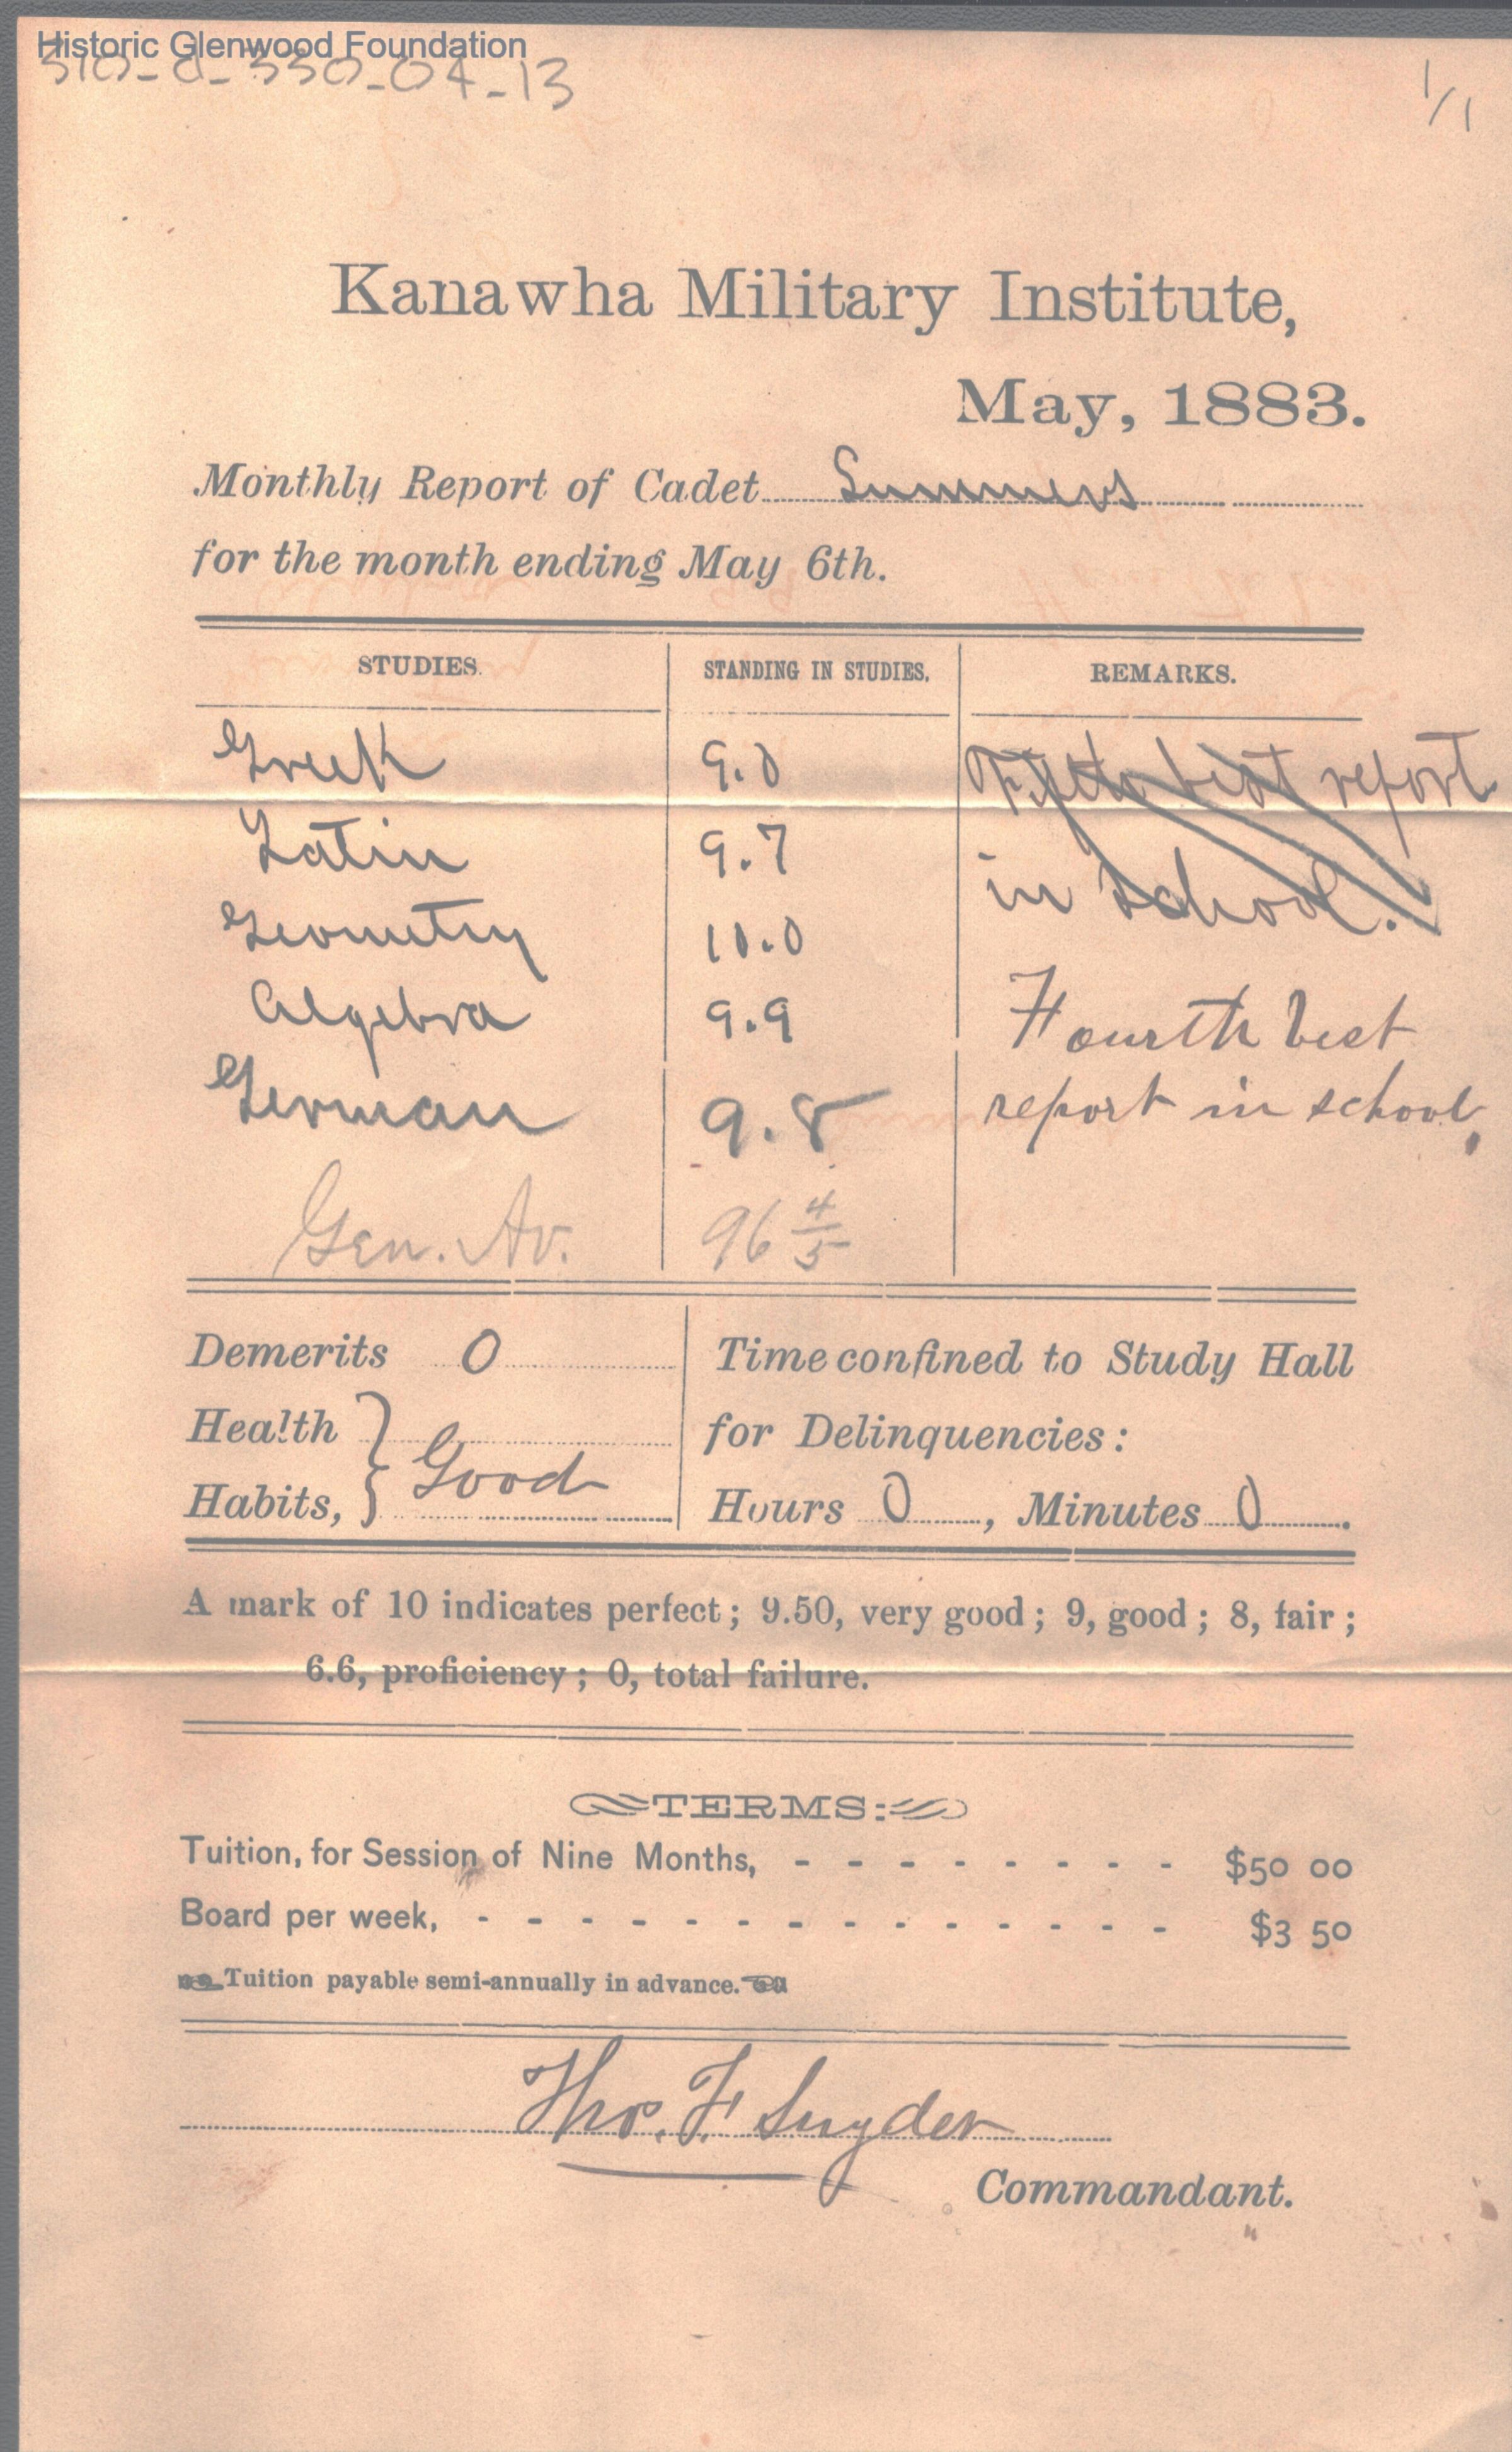 Historic Glenwood Foundation
310-a-330-04-13
1/1
Kanawha Military Institute,
May, 1883.
Monthly Report of Cadet Summers
for the month ending May 6th.
STUDIES. STANDING IN STUDIES. REMARKS.
Greek 9.0 Fifth best report
Latin 9.7 in school.
Geometry 10.0
Algebra 9.9 Fourth best
German 9.8 report in school,
Gen. Av. 96 4/5
Demerits 0 Time confined to Study Hall
Health } Good for Delinquencies:
Habits, } Hours 0, Minutes 0.
A mark of 10 indicates perfect; 9.50, very good; 9, good; 8, fair;
6.6, proficiency; 0, total failure.
TERMS:
Tuition, for Session of Nine Months, - - - - - - - - $50 00
Board per week, - - - - - - - - - - - - - - $3 50
Tuition payable semi-annually in advance.
Thos. F. Snyder
Commandant.